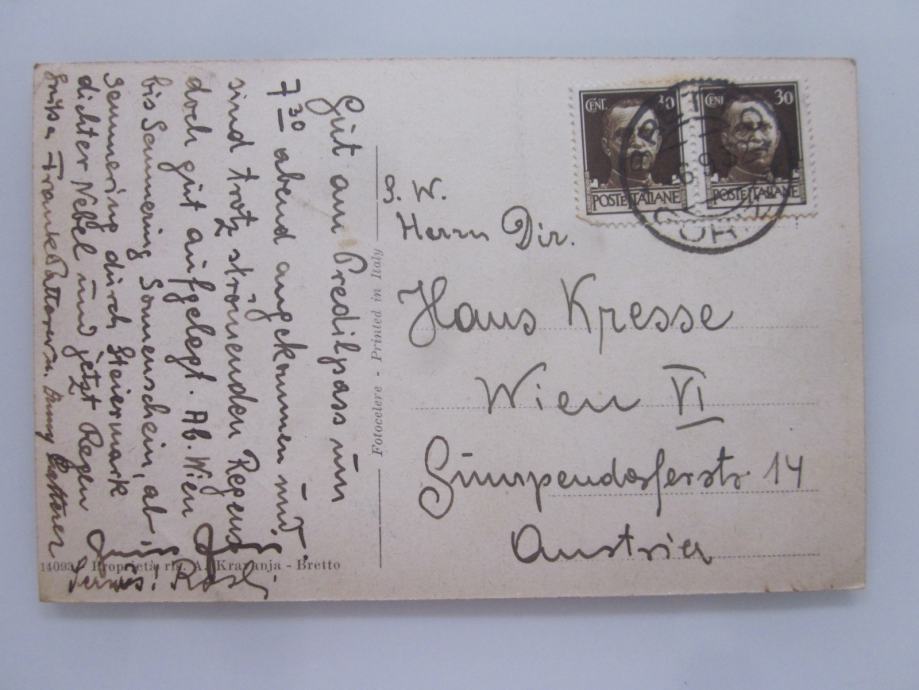 Gut am Predilpass um
7 30 abend angekommen und
sind trotz strömenden Regens
doch gut aufgelegt. Ab Wien
bis Semmering Sonnenschein, ab
Semmering durch Steiermark
dichter Nebel und jetzt Regen
Servus! Rosl
CENT. 30
POSTE ITALIANE
CENT. 30
POSTE ITALIANE
S. W.
Herrn Dir.
Hans Kresse
Wien VI
Gumpendorferstr 14
Austria
Fotocelere - Printed in Italy
Proprietà ris. A. Kravanja - Bretto